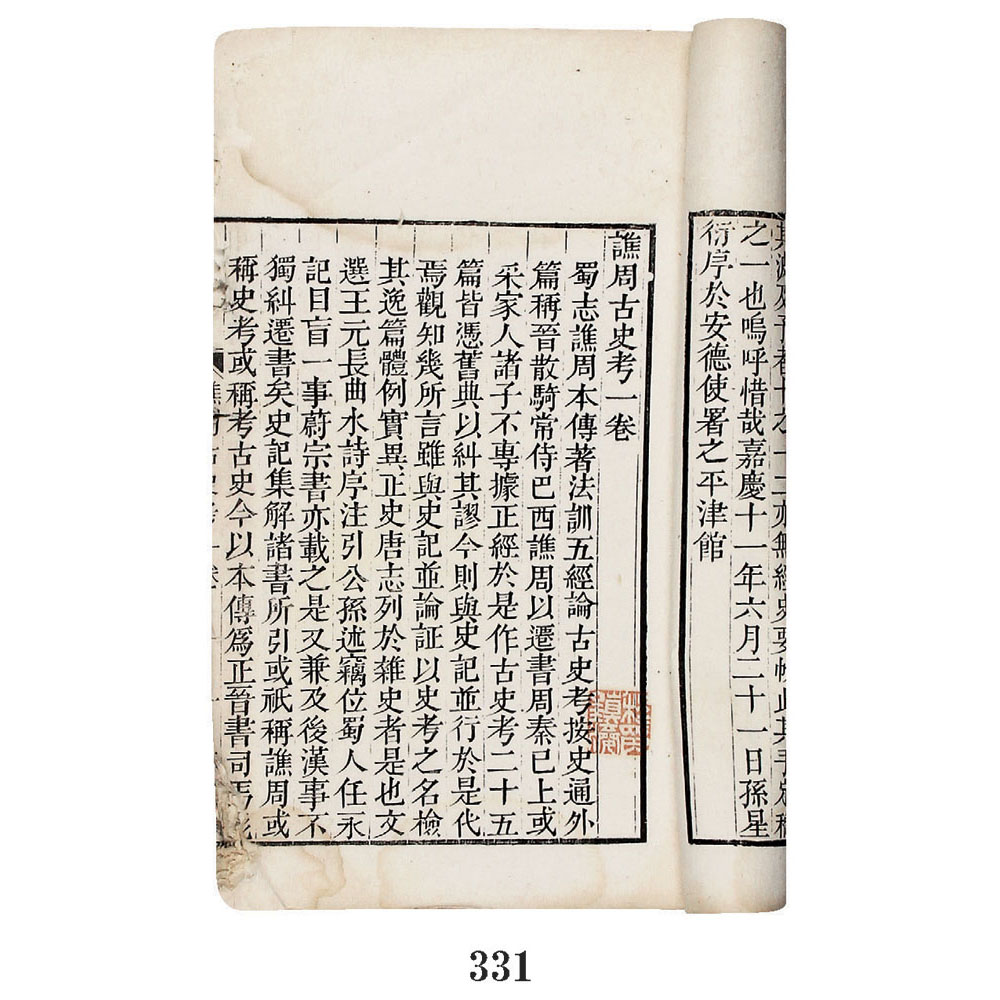 一二亦無經史要帙此其手
之一也嗚呼惜哉嘉慶十一年六月二十一日孫星
衍序於安德使署之平津館
譙周古史考一卷
蜀志譙周本傳著法訓五經論古史考按史通外
篇稱晉散騎常侍巴西譙周以遷書周秦已上或
采家人諸子不專據正經於是作古史考二十五
篇皆憑舊典以糾其謬今則與史記並行於是代
焉觀知幾所言雖與史記並論証以史考之名檢
其逸篇體例實異正史唐志列於雜史者是也文
選王元長曲水詩序注引公孫述竊位蜀人任永
記目盲一事蔚宗書亦載之是又兼及後漢事不
獨糾遷書矣史記集解諸書所引或祇稱譙周或
稱史考或稱考古史今以本傳爲正晉書司馬
331